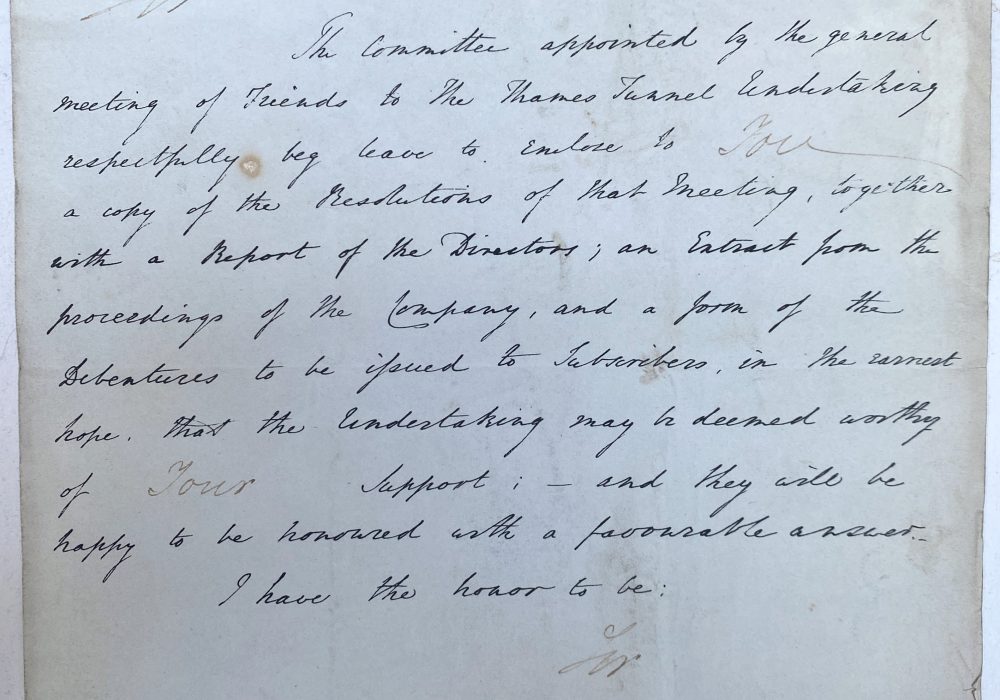 The Committee appointed by the general
meeting of Friends to the Thames Tunnel Undertaking
respectfully beg leave to enclose to You
a copy of the Resolutions of that Meeting, together
with a Report of the Directors; an Extract from the
proceedings of the Company, and a form of the
Debentures to be issued to Subscribers, in the earnest
hope, that the Undertaking may be deemed worthy
of Your Support; — and they will be
happy to be honoured with a favourable answer.
I have the honor to be: